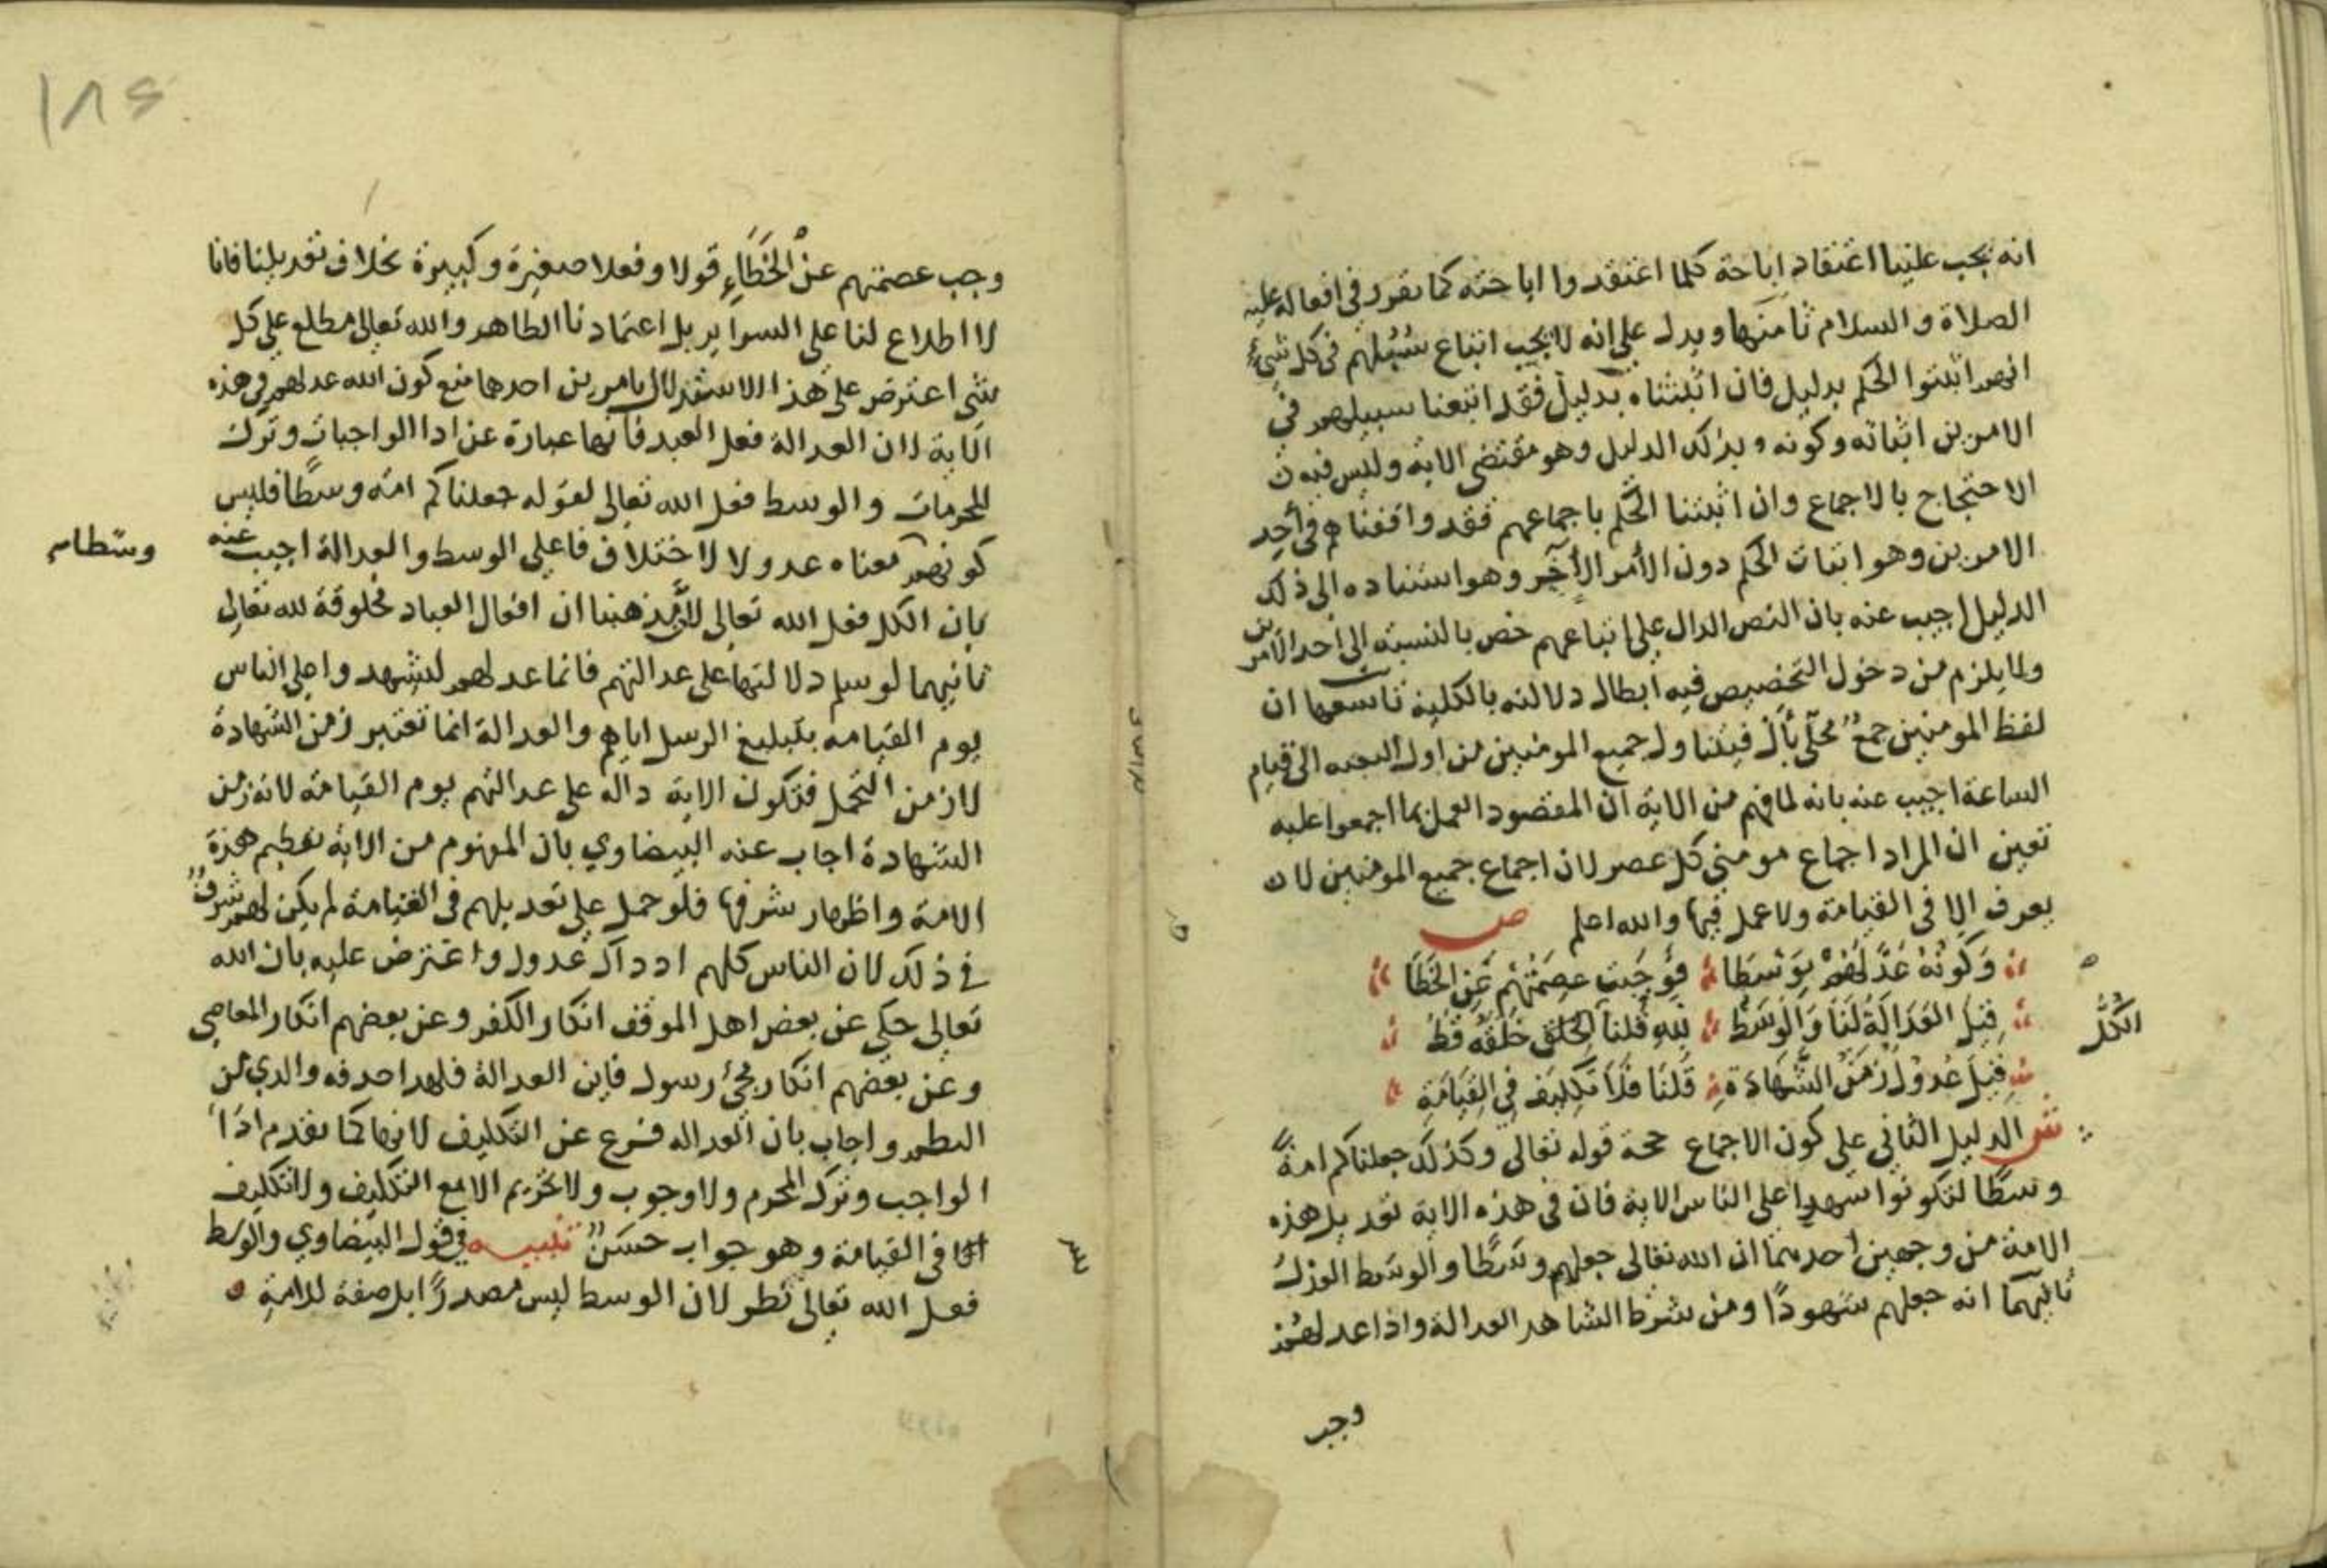 انه يجب علينا اعتقاد اباحة كلما اعتقدوا اباحته كما تقرر في افعاله عليه
الصلاة والسلام ثامنها ويدل على انه لا يجب اتباع سُبُلهم في كل شيء
انهم اثبتوا الحكم بدليل فان اثبتناه بدليل فقد اتبعنا سبيلهم في
الامرين اثباته وكونه بذلك الدليل وهو مقتضى الاية وليس فيه
الاحتجاج بالاجماع وان اثبتنا الحكم باجماعهم فقد وافقناهم في أحد
الامرين وهو اثبات الحكم دون الأمر الآخر وهو استناده الى ذلك
الدليل اجيب عنه بان النص الدال على اتباعهم خص بالنسبة الى احد الامرين
ولا يلزم من دخول التخصيص فيه ابطال دلالته بالكلية تاسعها ان
لفظ المومنين جمعٌ محلّى بأل فيتناول جميع المومنين من اول البعثه الى قيام
الساعة اجيب عنه بانه لما فهم من الاية ان المقصود العمل بما اجمعوا عليه
تعين ان المراد اجماع مومني كل عصر لان اجماع جميع المومنين لا
يعرف الا في القيامة ولا عمل فيها والله اعلم ص
وَكَونُهُ عَدَّلَهُمْ بِوَسَطَا فَوَجَبَت عِصْمَتُهُمْ عَنِ الخَطَا
قِيلَ العَدَالَةُ لَنَا وَالْوَسَطُ لِلّهِ قُلنا الخلق خَلْقُهُ قَطُ
الكُلّ
قِيلَ عُدُوْلٌ زَمَنَ الشَّهَادَةِ قُلنَا فَلاَ تَكلِيفَ فِي القِيَامَةِ
ش الدليل الثاني على كون الاجماع حجة قوله تعالى وكذلك جعلناكم امةً
وسطًا لتكونوا شهدا على الناس الاية فان في هذه الاية تعديل هذه
الامة من وجهين احدهما ان الله تعالى جعلهم وسَطًا والوسَط العدل
ثانيهما انه جعلهم شهودًا ومن شرط الشاهد العدالة واذا عدلهم
وجب
١٨٤
وجب عصمتهم عنْ الخَطَاءِ قولا وفعلا صغيرة وكبيرة بخلاف تعديلنا فانا
لا اطلاع لنا على السراير بل اعتمادنا الظاهر والله تعالى مطلع على كل
شي اعترض على هذا الاستدلال بامرين احدهما منع كون الله عدلهم في هذه
الآية لان العدالة فعل العبد فانها عبارة عن ادا الواجبات وترك
المحرمات والوسط فعل الله تعالى لقوله جعلناكم امة وسطًا فليس
كونهم معناه عدولا لاختلاف فاعلي الوسط والعدالة اجيب عنه
وسطا
بان الكل فعل الله تعالى لانّ مذهبنا ان افعال العباد مخلوقة لله تعالى
ثانيهما لو سلم دلالتها على عدالتهم فانما عدلهم ليشهدوا على الناس
يوم القيامة بتبليغ الرسل اياهم والعدالة انما تعتبر زمن الشهادة
لا زمن التحمل فتكون الاية دالة على عدالتهم يوم القيامة لانه زمن
الشهادة اجاب عنه البيضاوي بان المفهوم من الاية تعظيم هذه
الامة واظهار شرفها فلو حمل على تعديلهم في القيامة لم يكن لهم شرفٌ
في ذلك لان الناس كلهم اذ ذاك عدول واعترض عليه بان الله
تعالى حكى عن بعض اهل الموقف انكار الكفر وعن بعضهم انكار المعاصي
وعن بعضهم انكار مجئ رسول فاين العدالة
واجاب بان العداله فرع عن التكليف لانها كما تقدم ادا
الواجب وترك المحرم ولا وجوب ولا تحريم الا مع التكليف ولا تكليف
في القيامة وهو جواب حسَنٌ تنبيه في قول البيضاوي والوسط
فعل الله تعالى نظر لان الوسط ليس مصدرًا بل صفة للامةِ